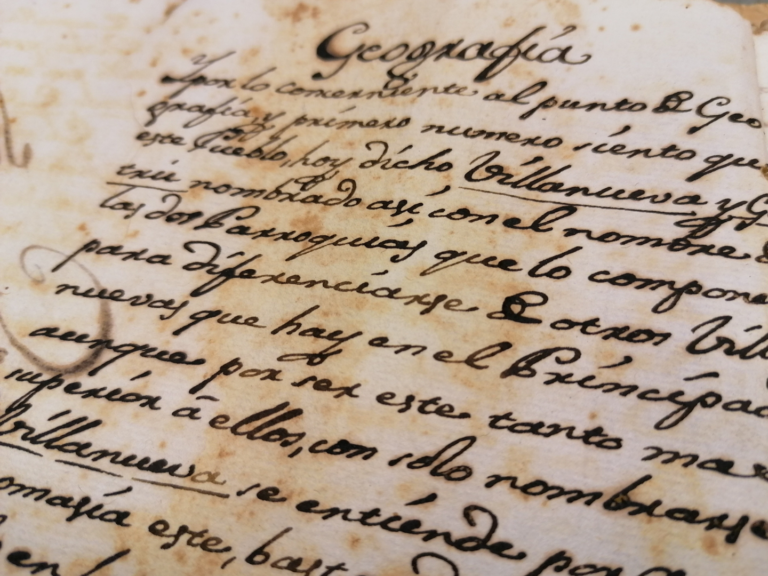 Geografía
Y por lo concerniente al punto de Geo
grafía, y primero numero siento que
este Pueblo, hoy dicho Villanueva y G
trú nombrado así con el nombre de
las dos Parroquias que lo compone
para diferenciarse de otros Vill
nuevas que hay en el Principad
aunque por ser este tanto ma
superior á ellos, con solo nombrarse
Villanueva se entiende por
omasia este, bast
en l